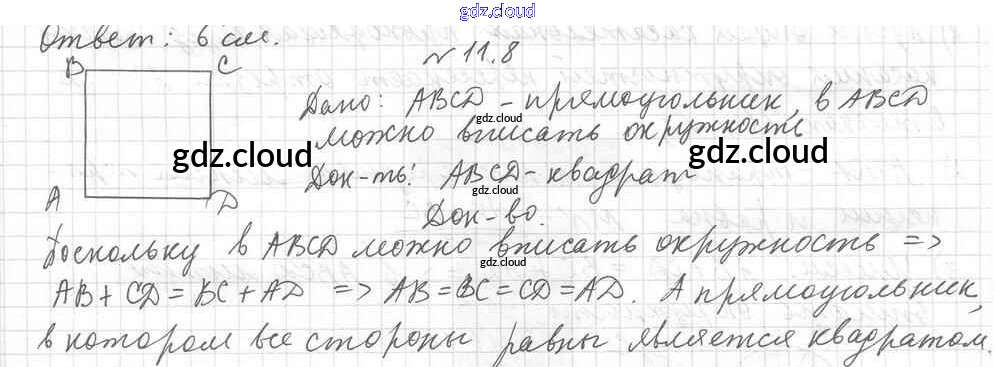 gdz.cloud
Ответ: 6 см.
№ 11.8
B C
Дано: ABCD - прямоугольник, в ABCD
gdz.cloud
можно вписать окружность
gdz.cloud gdz.cloud
Док-ть: ABCD - квадрат
gdz.cloud
A D
Док-во.
Поскольку в ABCD можно вписать окружность =>
gdz.cloud
AB + CD = BC + AD => AB = BC = CD = AD. А прямоугольник,
в котором все стороны равны является квадратом.
gdz.cloud